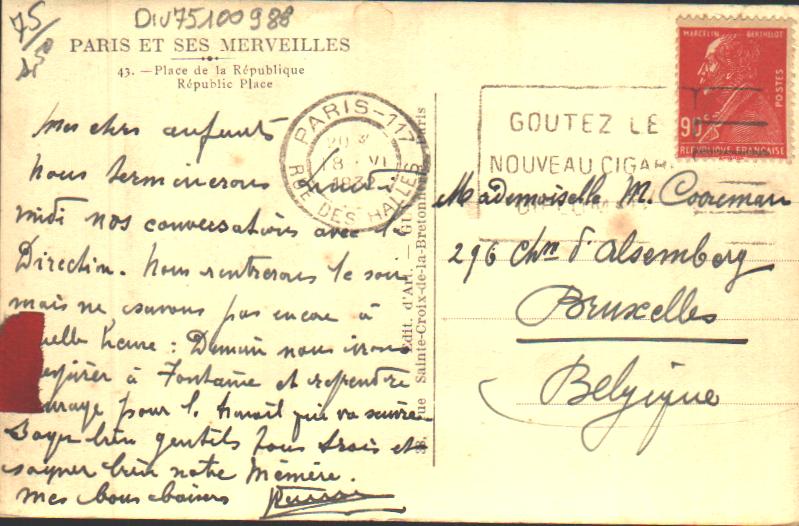 75
DIV75100988
PARIS ET SES MERVEILLES
43. — Place de la République
Republic Place
Mes chers enfants
Nous terminerons mardi
midi nos conversations avec la
Direction. Nous rentrerons le soir
mais ne savons pas encore à
uelle heure : Demain nous irons
à Fontaine et reprendre
urage pour l. travail qui va suivre
Soyez bien gentils tous trois et
soignez bien notre Mémère.
Mes bons baisers
PARIS-117
RUE DES HALLES
20
8 VI
Edit. d'Art. — GU
rue Sainte-Croix-de-la-Bretonnerie, Paris
GOUTEZ LE
NOUVEAU CIGAR
MARCELIN BERTHELOT
POSTES
90c
REPUBLIQUE FRANÇAISE
Mademoiselle M. Cooreman
296 Chn d'Alsemberg
Bruxelles
Belgique